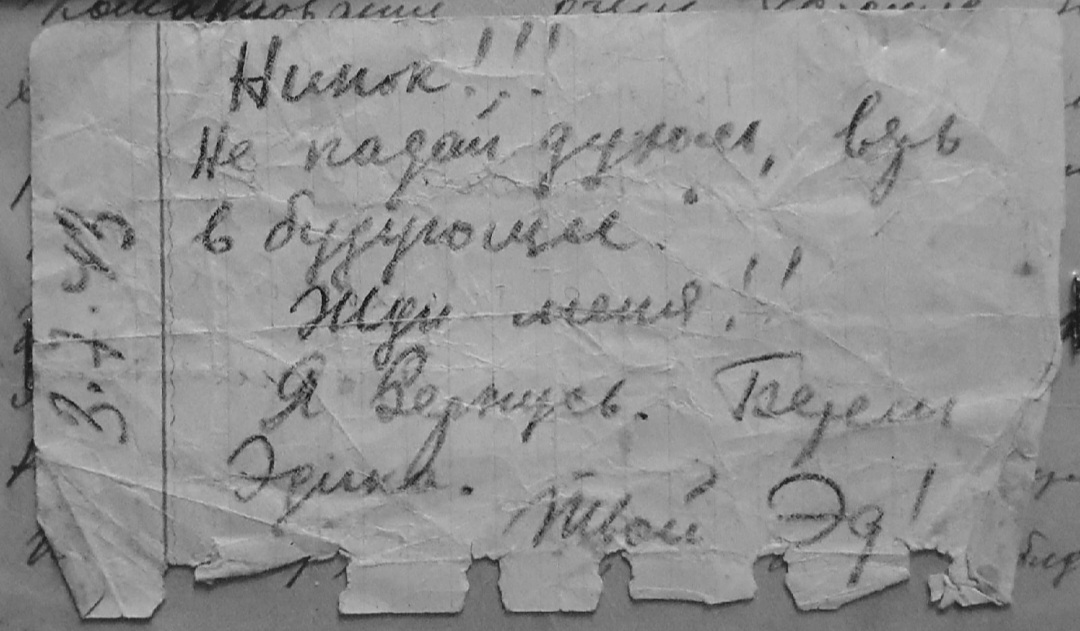 Нинок!!!
Не падай духом, ведь
в будующем.
Жди меня!!
Я Вернусь. Береги
Эдика.
Твой Эд!
3.7.43